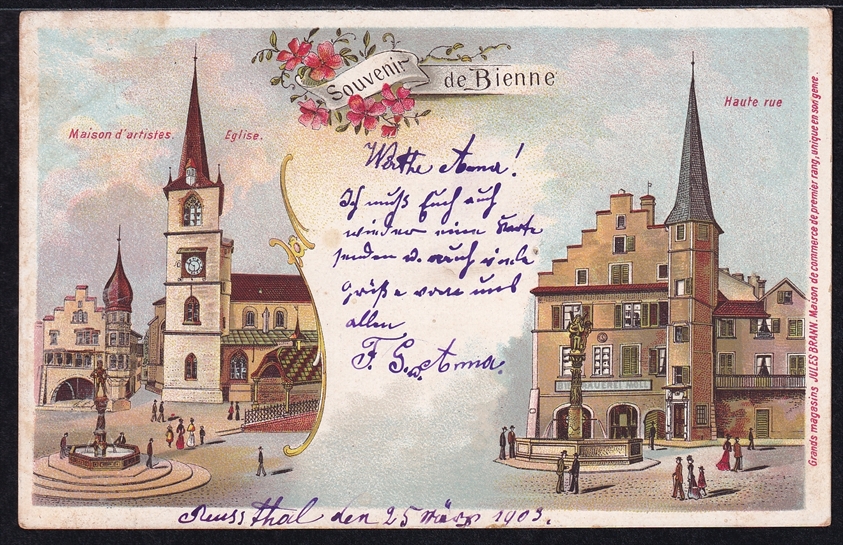 Souvenir de Bienne
Maison d'artistes.
Eglise.
Haute rue
Werthe Anna!
Ich muß Euch auch
wieder eine Karte
senden u. auch viele
grüße von uns
allen
F. G. u. Anna.
BIERBRAUEREI MOLL
Reussthal den 25 März 1903.
Grands magasins JULES BRANN. Maison de commerce de premier rang, unique en son genre.